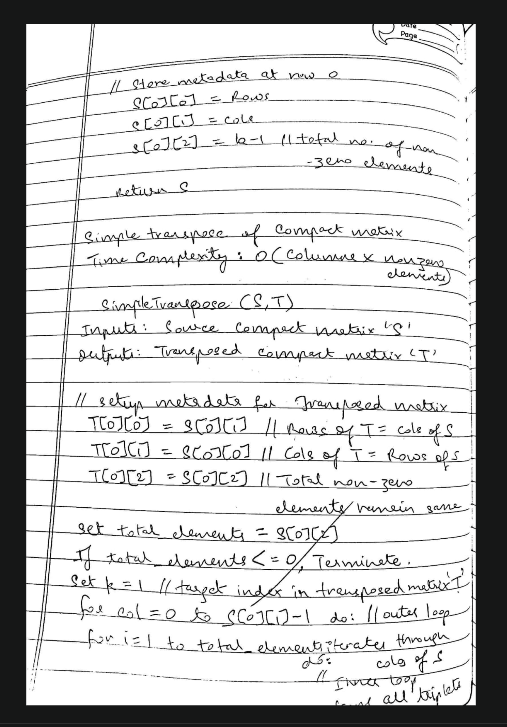 Date
Page
// Store metadata at row 0
S[0][0] = Rows
S[0][1] = cols
S[0][2] = k-1 // total no. of non
-zero elements
return S
Simple transpose of Compact matrix
Time Complexity : O(columns x nonzero
elements)
SimpleTranspose (S,T)
Inputs: Source compact matrix 'S'
Outputs: Transposed compact matrix 'T'
// setup metadata for Transposed matrix
T[0][0] = S[0][1] // Rows of T = cols of S
T[0][1] = S[0][0] // Cols of T = Rows of S
T[0][2] = S[0][2] // Total non-zero
elements remain same
set total elements = S[0][2]
If total_elements <= 0, Terminate.
Set k = 1 // target index in transposed matrix 'T'
for col = 0 to S[0][1]-1 do: // outer loop
for i=1 to total_elements iterates through
do: cols of S
// Inner loop
all triplets